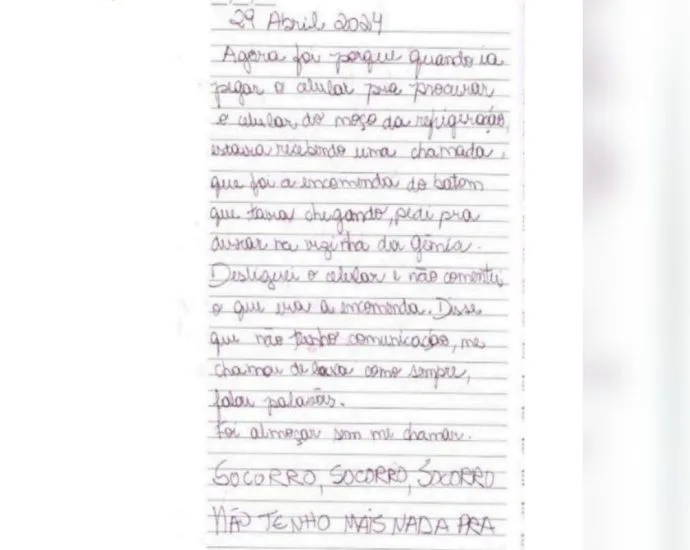 29 Abril 2024
Agora foi porque quando ia
pegar o celular pra procurar
o celular do moço da refrigeração,
estava recebendo uma chamada,
que foi a encomenda do batom
que tava chegando, pedi pra
deixar na vizinha da Gênia.
Desliguei o celular e não comentei
o que era a encomenda. Disse
que não tenho comunicação, me
chamou de como sempre,
falou palavrões.
Foi almoçar sem me chamar.
SOCORRO, SOCORRO, SOCORRO
NÃO TENHO MAIS NADA PRA